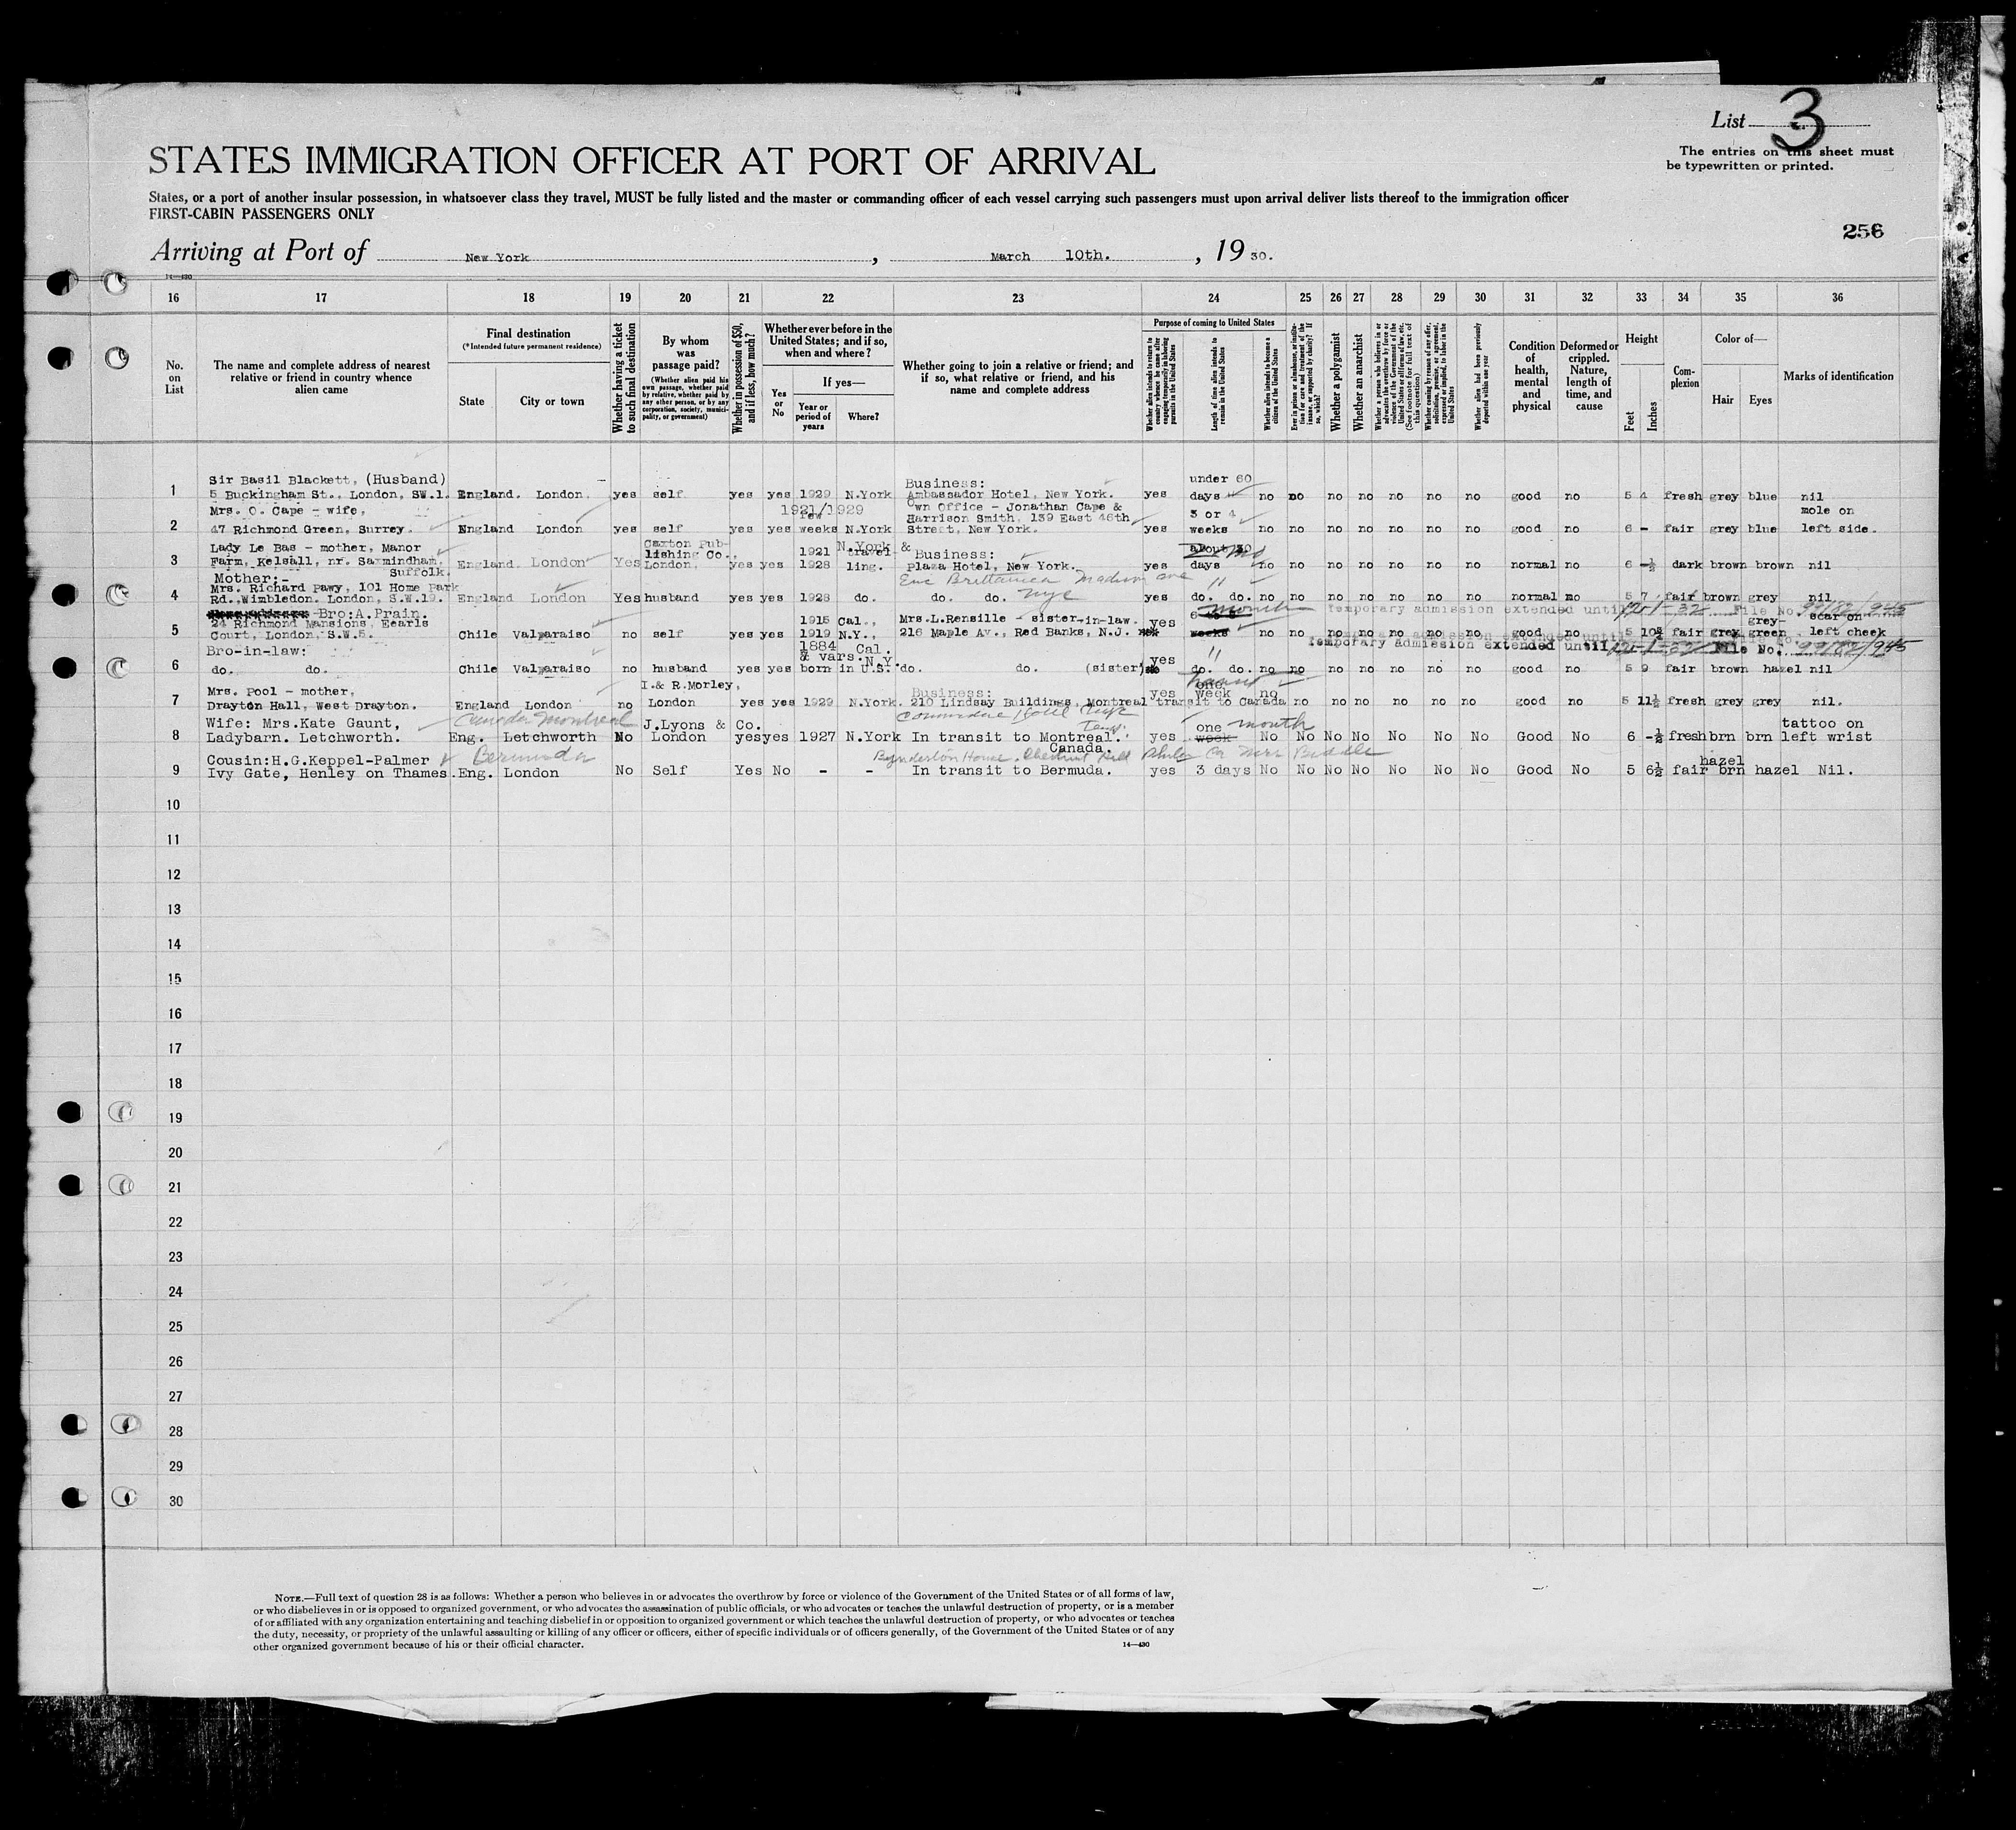 List 3
The entries on this sheet must
be typewritten or printed.
STATES IMMIGRATION OFFICER AT PORT OF ARRIVAL
States, or a port of another insular possession, in whatsoever class they travel, MUST be fully listed and the master or commanding officer of each vessel carrying such passengers must upon arrival deliver lists thereof to the immigration officer
FIRST-CABIN PASSENGERS ONLY
256
Arriving at Port of New York, March 10th., 1930.
14—430
16 17 18 19 20 21 22 23 24 25 26 27 28 29 30 31 32 33 34 35 36
No. on List
The name and complete address of nearest relative or friend in country whence alien came
Final destination
(*Intended future permanent residence)
State
City or town
Whether having a ticket to such final destination
By whom was passage paid?
(Whether alien paid his own passage, whether paid by relative, whether paid by any other person, or by any corporation, society, municipality, or government)
Whether in possession of $50, and if less, how much?
Whether ever before in the United States; and if so, when and where?
Yes or No
If yes—
Year or period of years
Where?
Whether going to join a relative or friend; and if so, what relative or friend, and his name and complete address
Purpose of coming to United States
Whether alien intends to return to country whence he came after engaging temporarily in laboring pursuits in the United States
Length of time alien intends to remain in the United States
Whether alien intends to become a citizen of the United States
Ever in prison or almshouse, or institution for care and treatment of the insane, or supported by charity? If so, which?
Whether a polygamist
Whether an anarchist
Whether a person who believes in or advocates the overthrow by force or violence of the Government of the United States or all forms of law, etc. (See footnote for full text of this question)
Whether coming by reason of any offer, solicitation, promise, or agreement, expressed or implied, to labor in the United States
Whether alien had been previously deported within one year
Condition of health, mental and physical
Deformed or crippled. Nature, length of time, and cause
Height
Feet
Inches
Complexion
Color of—
Hair
Eyes
Marks of identification
Sir Basil Blackett, (Husband) Business: under 60
1 5 Buckingham St., London, SW.1. England. London. yes self yes yes 1929 N.York Ambassador Hotel, New York. yes days no no no no no no no good no 5 4 fresh grey blue nil
Mrs. O. Cape - wife, 1921/1929 Own Office - Jonathan Cape & 3 or 4 mole on
few Harrison Smith, 139 East 46th
2 47 Richmond Green, Surrey. England London yes self yes yes weeks N.York Street, New York. yes weeks no no no no no no no good no 6 - fair grey blue left side.
Lady Le Bas - mother, Manor Caxton Pub- 1921 N.York & about 30
lishing Co., travel- Business:
3 Farm, Kelsall, nr. Saxmindham, Suffolk. England. London Yes London, yes yes 1928 ling. Plaza Hotel, New York. yes days no no no no no no no normal no 6 -½ dark brown brown nil
Mother:- Enc Brittanica Madison ave
Mrs. Richard Pawy, 101 Home Park nyc
4 Rd., Wimbledon. London, S.W.19. England London Yes husband yes yes 1928 do. do. do. yes do. do. no no no no no no no normal no 5 7 fair brown grey nil
Bro: A.Prain. month Temporary admission extended until 12-1-32 File No. 99182/945
24 Richmond Mansions, Eearls 1915 Cal., Mrs.L.Rensille - sister-in-law. yes grey- scar on
5 Court, London, S.W.5. Chile Valparaiso no self yes yes 1919 N.Y., 216 Maple Av., Red Banks, N.J. weeks no no no no no no no good no 5 10½ fair grey green left cheek
Bro-in-law: 1884 Cal. Temporary admission extended until 12-1-32 File No. 99182/945
& vars. N.Y. yes
6 do. do. Chile Valparaiso no husband yes yes born in U.S. do. do. (sister) do. do. no no no no no no no good no 5 9 fair brown hazel nil
Mrs. Pool - mother, I.& R.Morley, Business: yes one week no
7 Drayton Hall, West Drayton. England London no London yes yes 1929 N.York. 210 Lindsay Buildings, Montreal transit to Canada no no no no no no good no 5 11½ fresh grey grey nil.
Wife: Mrs.Kate Gaunt, Canada Montreal J.Lyons & Co. Commodore Hotel one month tattoo on
8 Ladybarn. Letchworth. Eng. Letchworth No London yes yes 1927 N.York In transit to Montreal. Canada. yes week No No No No No No No Good No 6 -½ fresh brn brn left wrist
Cousin: H.G.Keppel-Palmer Bermuda Chestnut Hill hazel
9 Ivy Gate, Henley on Thames. Eng. London No Self Yes No - - In transit to Bermuda. yes 3 days No No No No No No No Good No 5 6½ fair brn hazel Nil.
10
11
12
13
14
15
16
17
18
19
20
21
22
23
24
25
26
27
28
29
30
NOTE.—Full text of question 28 is as follows: Whether a person who believes in or advocates the overthrow by force or violence of the Government of the United States or of all forms of law,
or who disbelieves in or is opposed to organized government, or who advocates the assassination of public officials, or who advocates or teaches the unlawful destruction of property, or is a member
of or affiliated with any organization entertaining and teaching disbelief in or opposition to organized government or which teaches the unlawful destruction of property, or who advocates or teaches
the duty, necessity, or propriety of the unlawful assaulting or killing of any officer or officers, either of specific individuals or of officers generally, of the Government of the United States or of any
other organized government because of his or their official character.
14—430